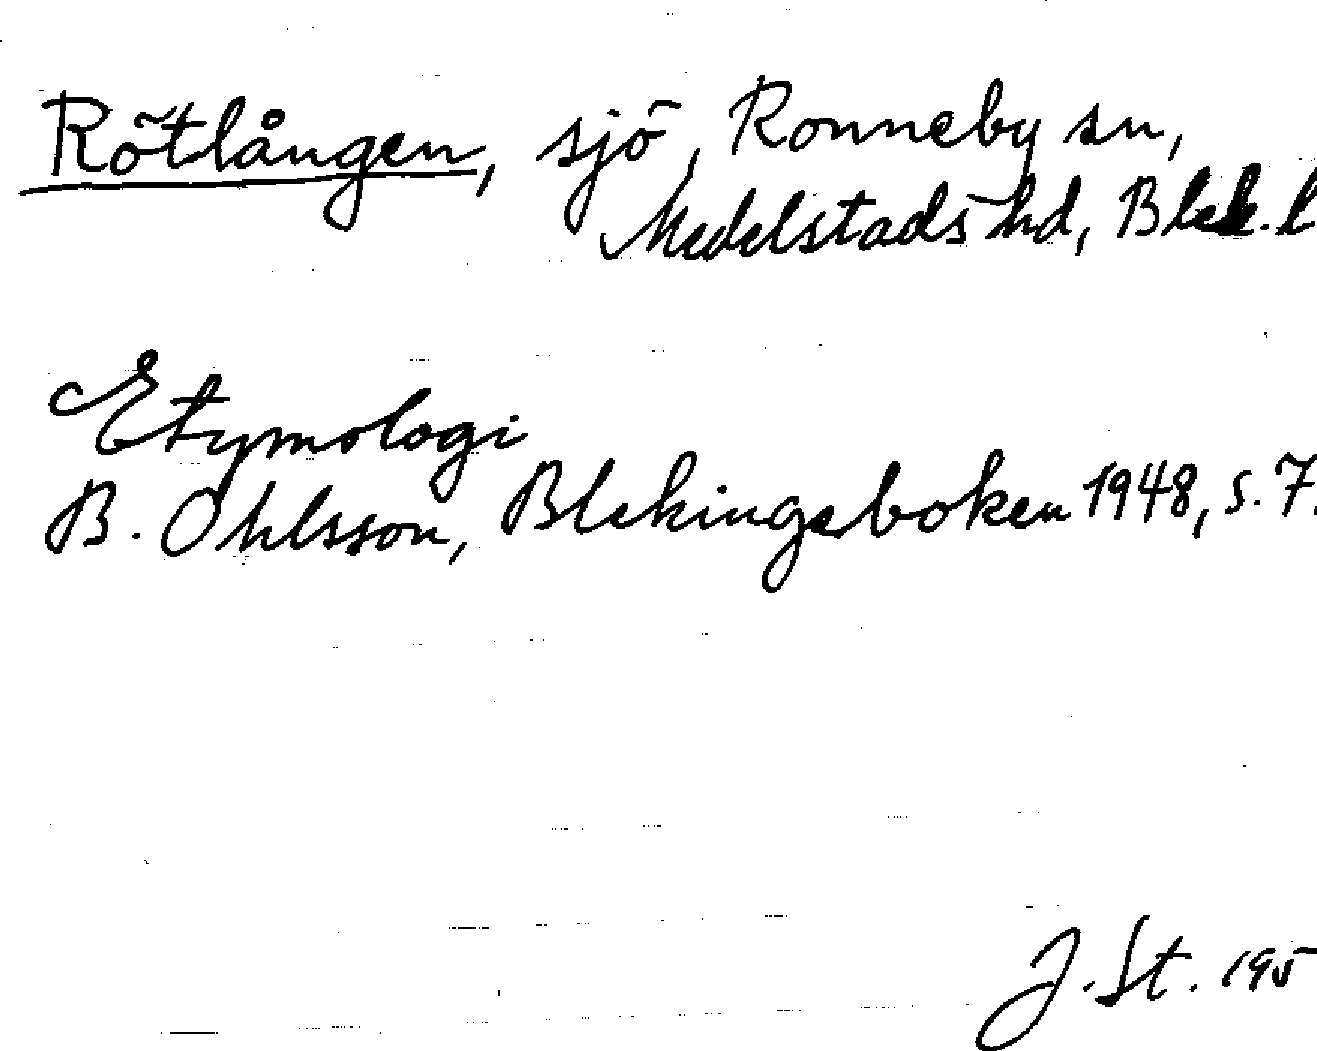 Rötlången, sjö, Ronneby sn,
Medelstads hd, Blek. l
Etymologi
B. Ohlsson, Blekingeboken 1948, s. 7.
J. St. 195